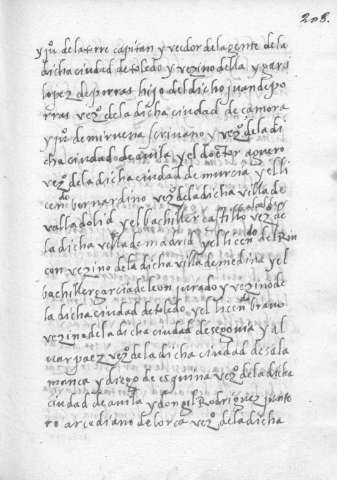 208.
y juº de la torre capitan y veedor de la gente de la
dicha ciudad de toledo y vezino della y garci
lopez de porras hijo del dicho juan de po
rras vezº de la dicha ciudad de çamora
y juº de mirueña scrivano y vezº de la di
cha ciudad de avila y el doctor aguero
vezº de la dicha ciudad de murcia y el li
cendo bernardino vezº de la dicha villa de
valladolid y el bachiller castillo vezº de
la dicha villa de madrid y el licendo del Rin
con vezino de la dicha villa de medina y el
bachiller garcia de leon jurado y vezino de
la dicha ciudad de toledo y el licendo bravo
vezino de la dicha ciudad de segovia y al
var paez vezº de la dicha ciudad de sala
manca y diego de esquina vezº de la dicha
ciudad de avila y don gil Rodriguez junte
ro arcediano de lorca vezº de la dicha